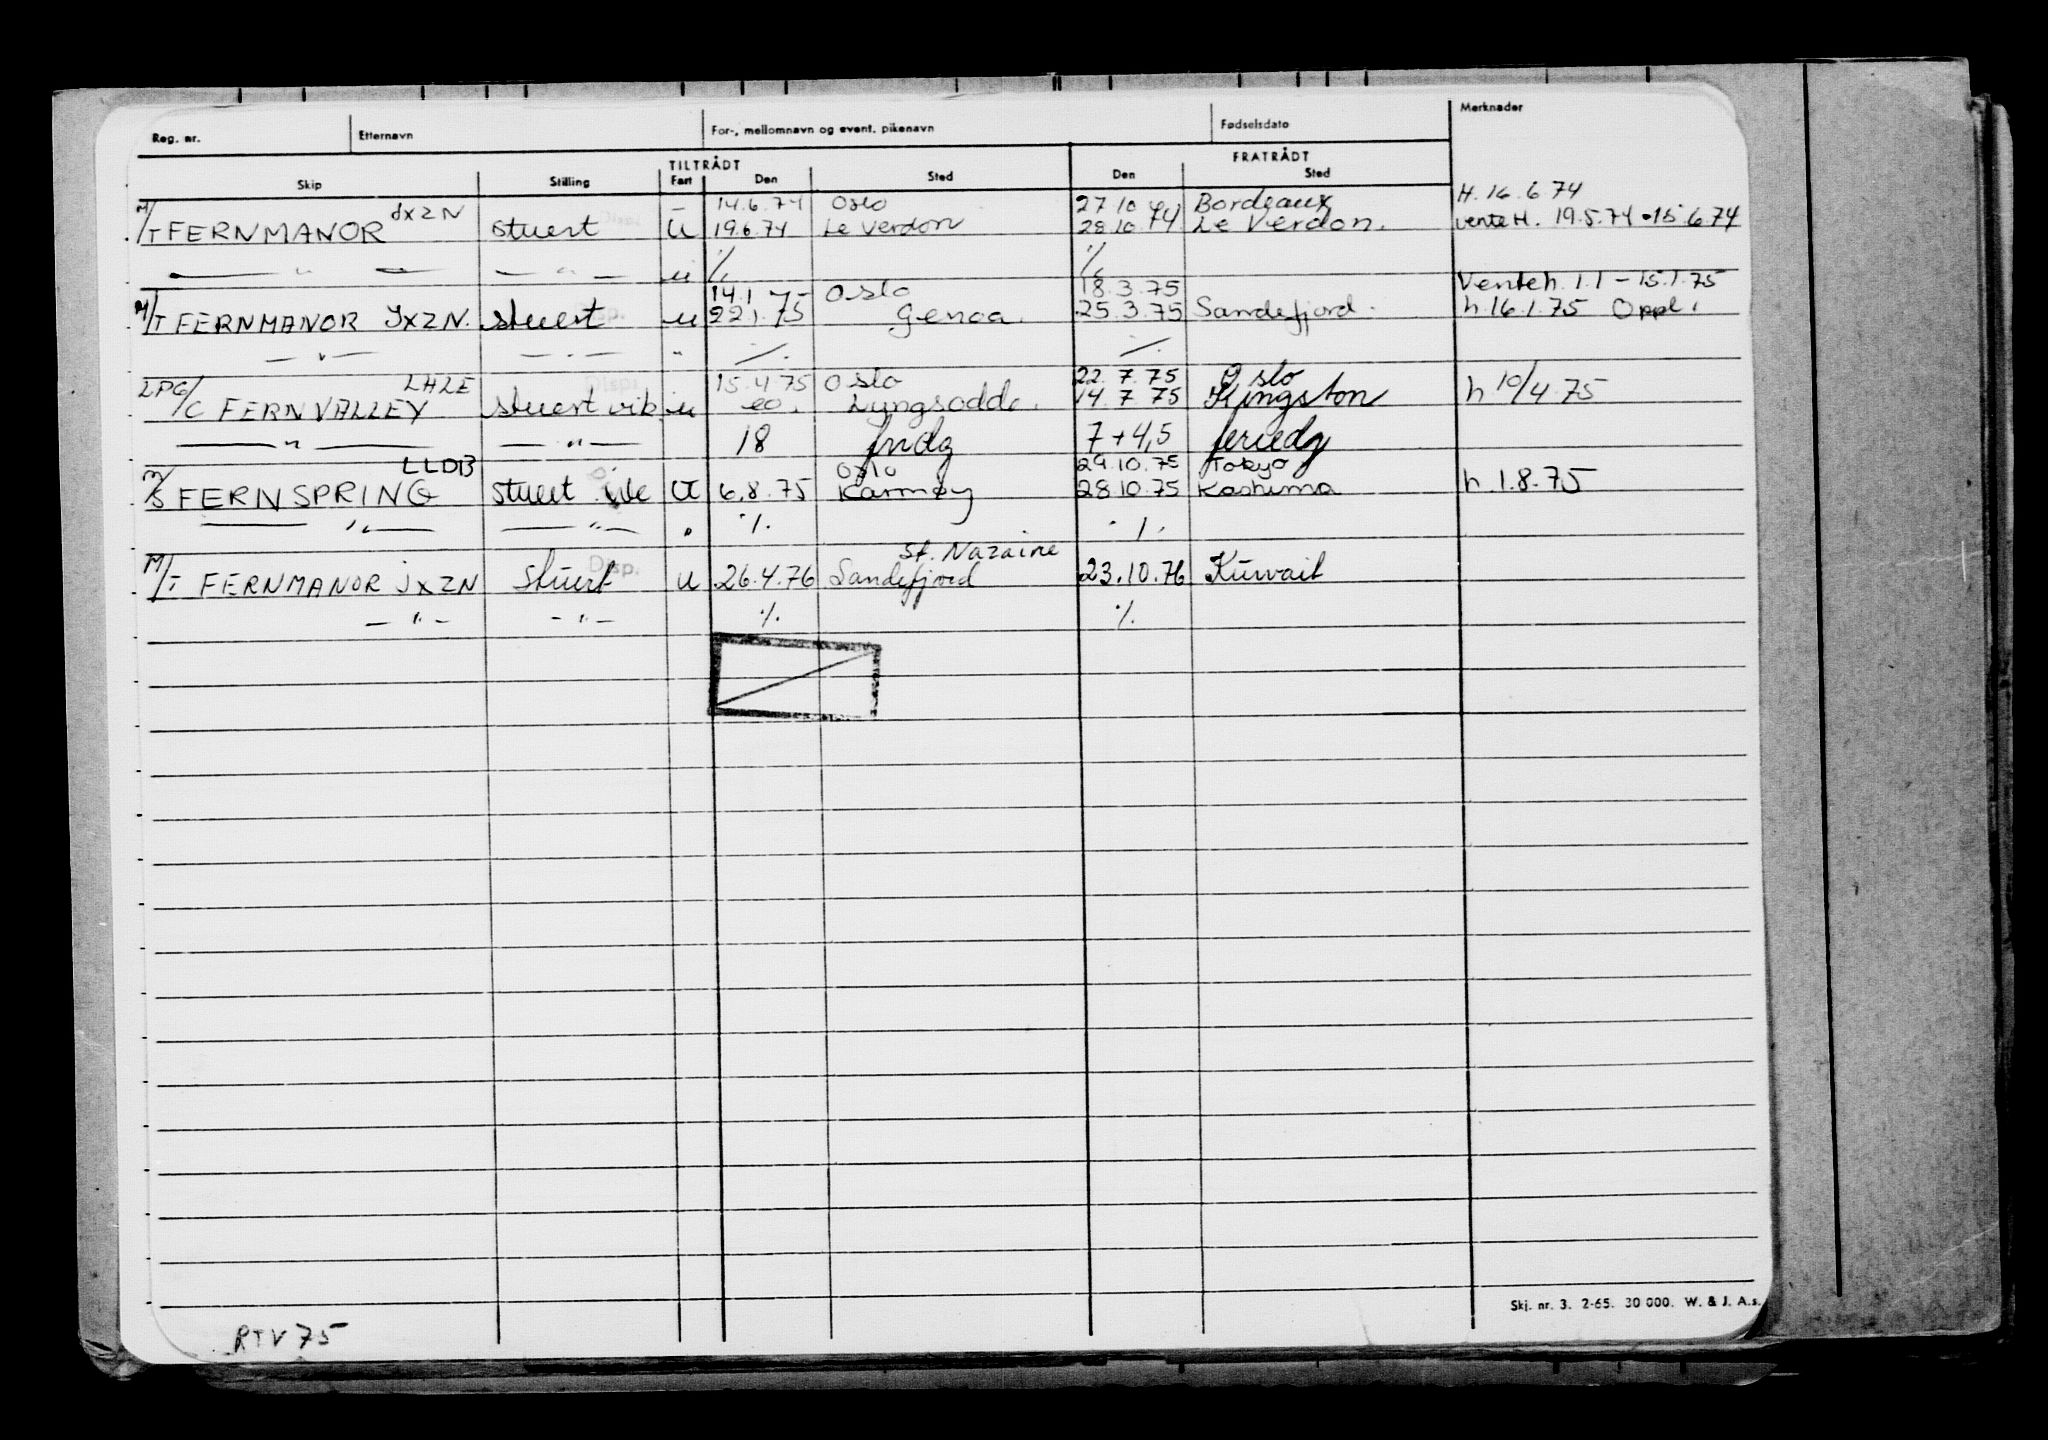 Reg. nr. Etternavn For-, mellomnavn og event. pikenavn Fødselsdato Merknader
TILTRÅDT FRATRÅDT
Skip Stilling Fart Den Sted Den Sted
JXZN - 14.6.74 Oslo 27.10.74 Bordeaux H. 16.6.74
M/T FERNMANOR stuert U 19.6.74 Le Verdon 28.10.74 Le Verdon. vente H. 19.5.74 - 15.6.74
— " — — " — u ·/. ·/.
14.1.75 Oslo 18.3.75 Vente h. 1.1 - 15.1.75
M/T FERNMANOR JXZN. stuert u 22.1.75 Genoa. 25.3.75 Sandefjord. h. 16.1.75 Oppl.
— " — — " — " ·/. ·/.
LHLE 15.4.75 Oslo 22.7.75 Oslo
LPG/C FERNVALLEY stuert vik u 20. Lyngsodde. 14.7.75 Kingston h 10/4.75
— " — — " — 18 fridg 7+4,5 feriedg
LLDB Oslo 29.10.75 Tokyo
M/S FERNSPRING stuert U 6.8.75 Karmøy 28.10.75 Kashima h. 1.8.75
— " — — " — " ·/. ·/.
St. Nazaire
M/T FERNMANOR JXZN Stuert Disp. u 26.4.76 Sandefjord 23.10.76 Kuwait
— " — — " — ·/. ·/.
Skj. nr. 3. 2-65. 30 000. W. & J. A.s.
RTV 75